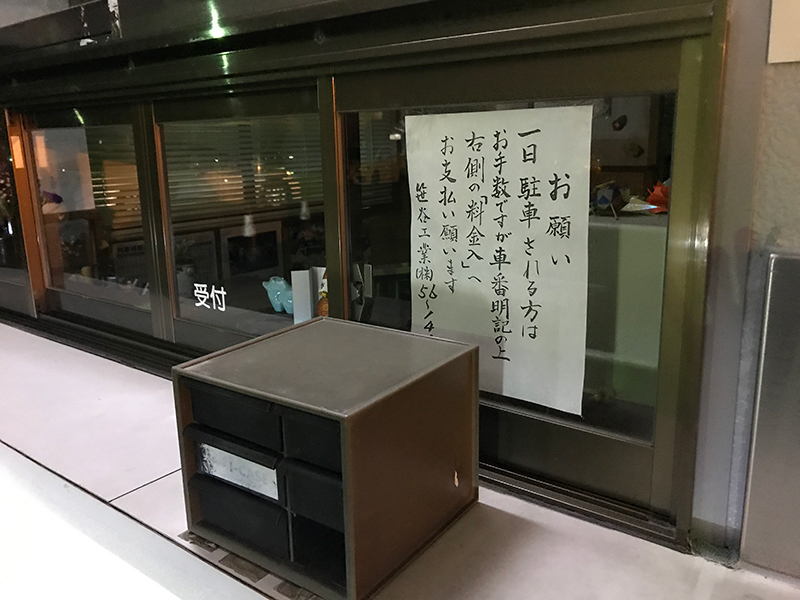 お願い
一日駐車される方は
お手数ですが車番明記の上
右側の「料金入」へ
お支払い願います
笹谷工業(株)
受付